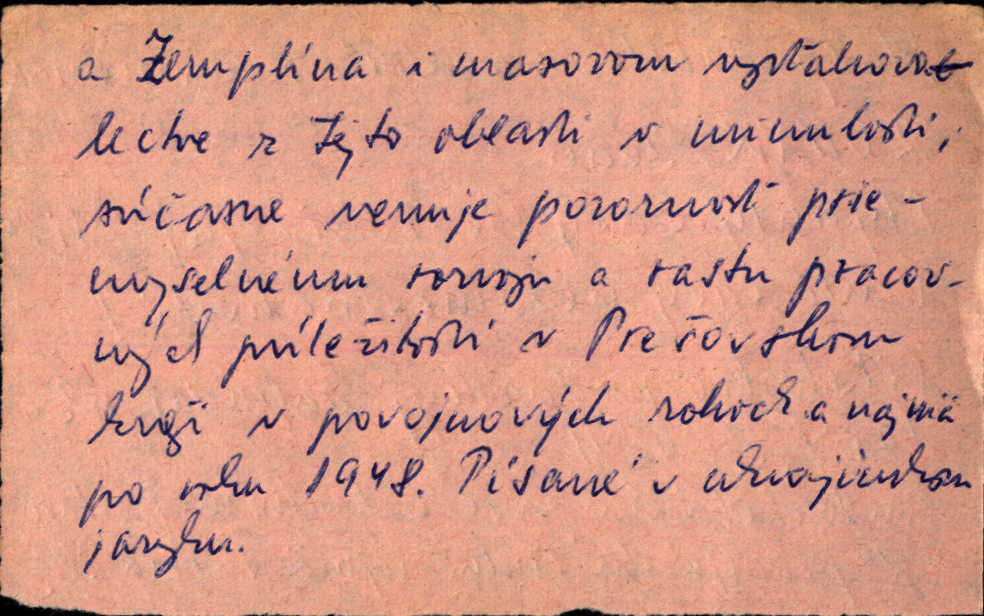 a Zemplína i masovom vysťahovat
lectve z tejto oblasti v minulosti,
súčasne venuje pozornosť prie-
myselnému rozvoju a rastu pracov-
ných príležitostí v Prešovskom
kraji v povojnových rokoch a najmä
po roku 1948. Písané v ukrajinskom
jazyku.